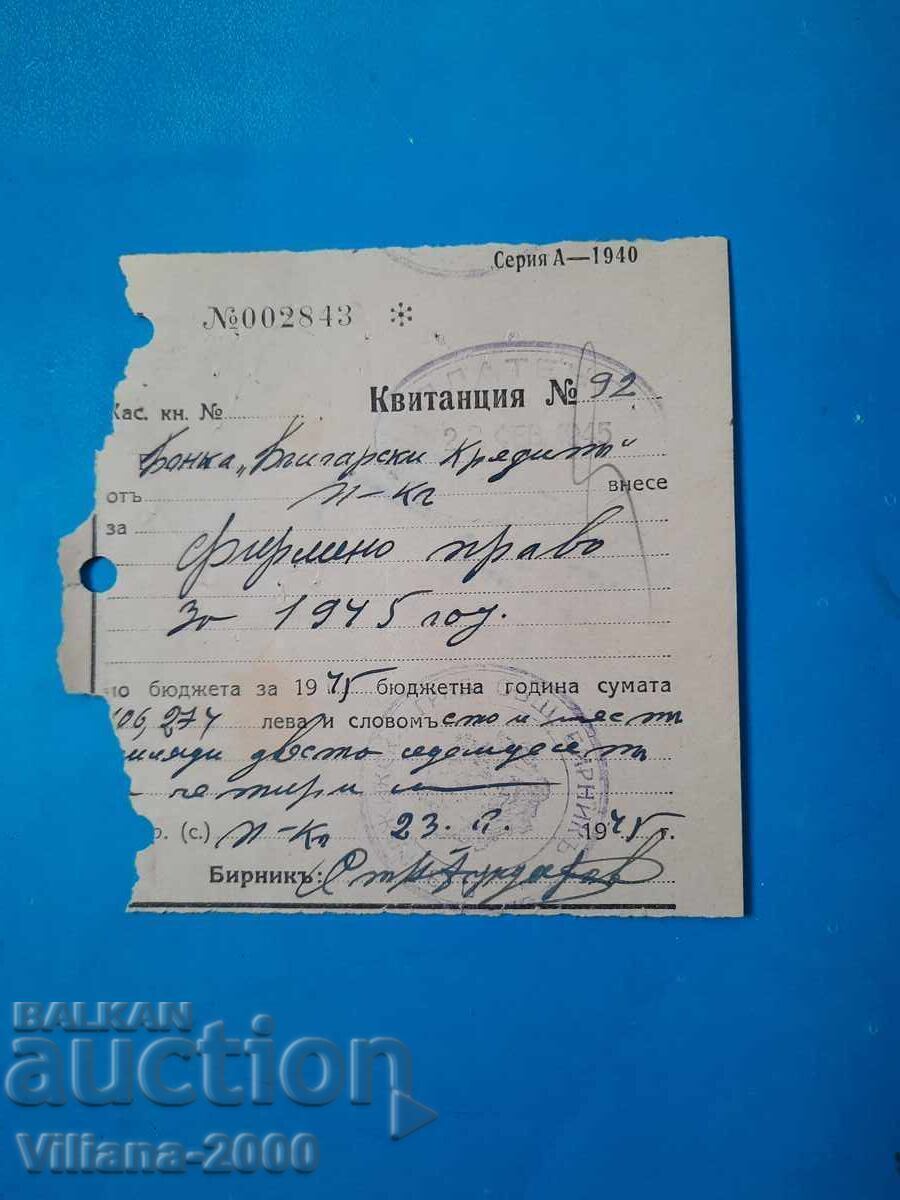 Серия А—1940
№002843 *
Квитанция № 92
Кас. кн. №
ПЛАТЕ
Банка „Български Кредитъ"
отъ П-КЧ внесе
за
фирмено право
за 1945 год.
по бюджета за 1945 бюджетна година сумата
106,274 лева и словомъ сто и шесть
хиляди двеста седемдесеть
и четири
р. (с.) П-Кч 23. II. 1945 г.
Бирникъ:
BALKAN
auction
Viliana-2000